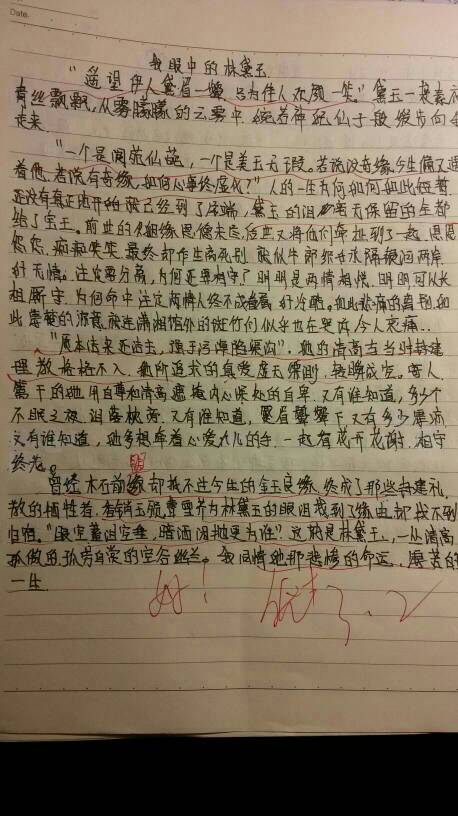 Date.
我眼中的林黛玉
"遥望伊人黛眉一蹙,只为佳人欢颜一笑。"黛玉一袭素衣
青丝飘飘,从雾朦朦的云雾中,宛若神妃仙子般缓步向
走来.
"一个是阆苑仙葩,一个是美玉无瑕。若说没奇缘,今生偏又遇
着他,若说有奇缘,如何心事终虚化?"人的一生为何如此
还没有真正便已经到了尽头,黛玉的泪毫无保留的全都
给了宝玉。前世的恩缘未尽,后世又将他们牵扯到了一起,恩恩
怨怨,痴痴笑笑.最终却作生离死别.就似牛郎织女水隔银河两岸
好无情。注定要分离,为何还要相守?明明是两情相悦,明明可以长
相厮守.为何命中注定两情人终不成眷属.好冷酷。如此悲痛的离别,如
此悲凄的,就连潇湘馆外的斑竹们似乎也在哭泣,令人哀痛..
"质本洁来还洁去,强于污淖陷渠沟",她的清高在当时封建
理教格格不入.她所追求的真爱虚无缥缈,转瞬成空。
的她用自尊和清高遮掩内心深处的自卑.又有谁知道,多少个
不眠之夜.泪落枕旁.又有谁知道,黛眉颦蹙下又有多少
又有谁知道,她多想牵着心爱人儿的手.一起看花开花谢.相守
终老。
曾经木石前缘却抵不过今生的金玉良缘,终成了那些封建礼
教的牺牲者.为林黛玉的眼泪找到了缘由,却找不到
归宿。"眼空蓄泪泪空垂,暗洒闲抛更为谁?"这就是林黛玉.,一丛清高
孤傲的,孤芳自赏的空谷幽兰。我同情她那悲惨的命运.凄苦的
一生.
好!